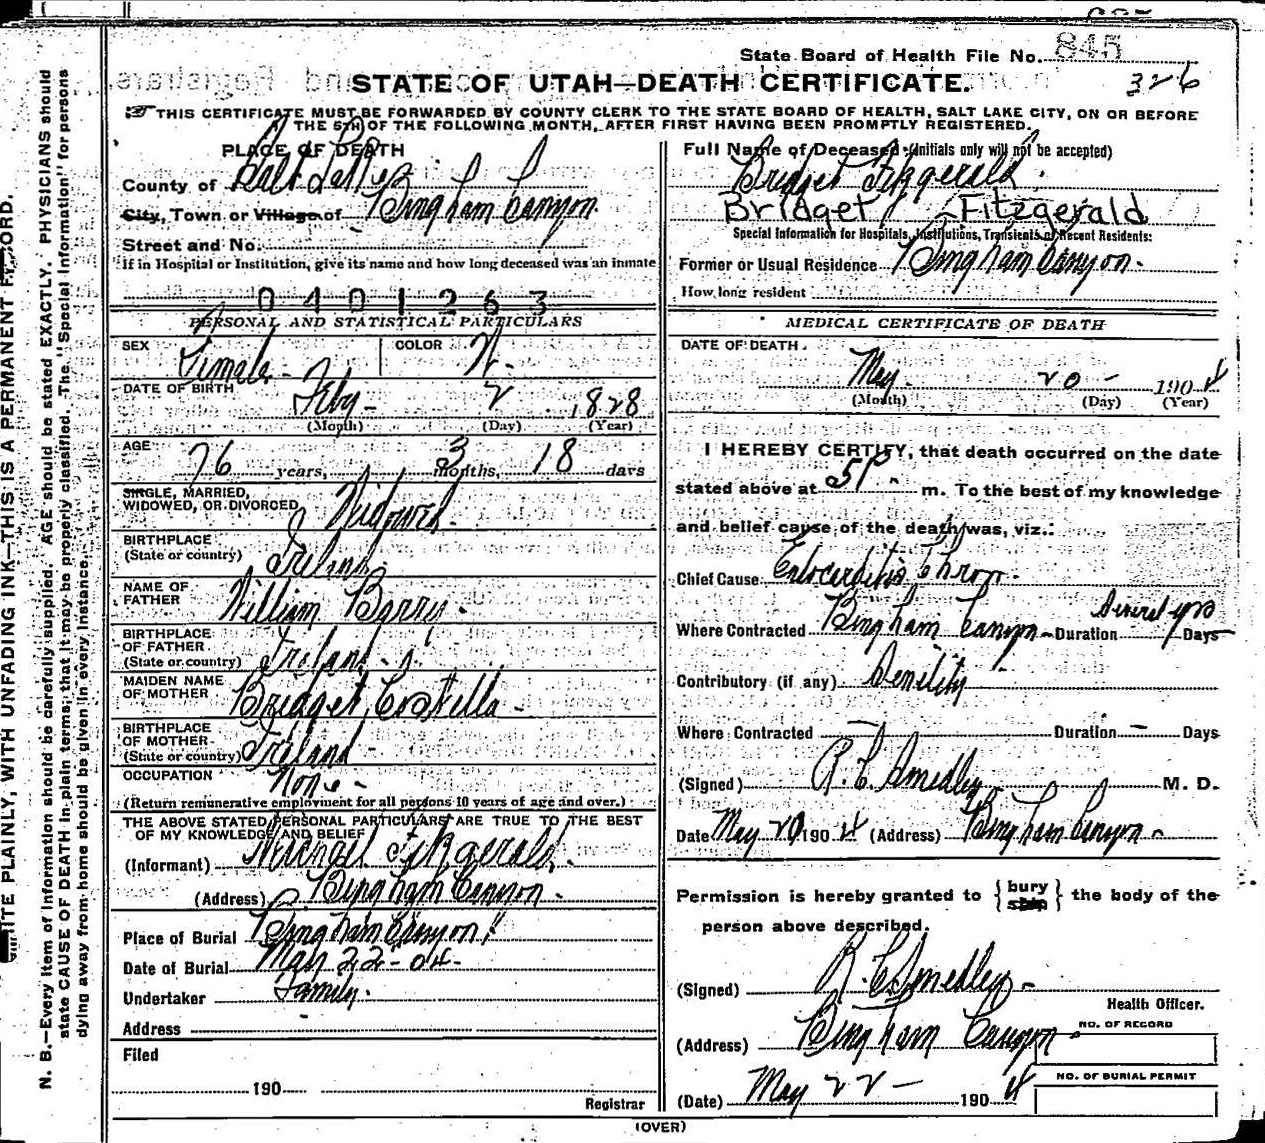 State Board of Health File No. 845
326
STATE OF UTAH—DEATH CERTIFICATE.
THIS CERTIFICATE MUST BE FORWARDED BY COUNTY CLERK TO THE STATE BOARD OF HEALTH, SALT LAKE CITY, ON OR BEFORE
THE 5TH OF THE FOLLOWING MONTH, AFTER FIRST HAVING BEEN PROMPTLY REGISTERED.
PLACE OF DEATH
County of Salt Lake
City, Town or Village of Bingham Canyon.
Street and No.
If in Hospital or Institution, give its name and how long deceased was an inmate
0401263
PERSONAL AND STATISTICAL PARTICULARS
SEX Female - COLOR W.
DATE OF BIRTH Feby - 2 1828
(Month) (Day) (Year)
AGE 76 years, 3 months, 18 days
SINGLE, MARRIED,
WIDOWED, OR DIVORCED Widowed.
BIRTHPLACE
(State or country) Ireland
NAME OF
FATHER William Barry.
BIRTHPLACE
OF FATHER
(State or country) Ireland
MAIDEN NAME
OF MOTHER Bridget Costella -
BIRTHPLACE
OF MOTHER
(State or country) Ireland -
OCCUPATION None -
(Return remunerative employment for all persons 10 years of age and over.)
THE ABOVE STATED PERSONAL PARTICULARS ARE TRUE TO THE BEST
OF MY KNOWLEDGE AND BELIEF
(Informant) Michael Fitzgerald.
(Address) Bingham Canyon -
Place of Burial Bingham Canyon
Date of Burial May 22-04-
Undertaker Family.
Address
Filed
190
Registrar
Full Name of Deceased (Initials only will not be accepted)
Bridget Fitzgerald.
Bridget Fitzgerald
Special Information for Hospitals, Institutions, Transients or Recent Residents:
Former or Usual Residence Bingham Canyon.
How long resident
MEDICAL CERTIFICATE OF DEATH
DATE OF DEATH.
May. 20 - 1904
(Month) (Day) (Year)
I HEREBY CERTIFY, that death occurred on the date
stated above at 5 P. m. To the best of my knowledge
and belief cause of the death was, viz.:
Chief Cause Endocarditis Chron.
Where Contracted Bingham Canyon - Duration Several yrs Days
Contributory (if any) Senility
Where Contracted Duration - Days
(Signed) R. C. Smedley M. D.
Date May 20 1904 (Address) Bingham Canyon -
Permission is hereby granted to {bury} the body of the
person above described.
(Signed) R. C. Smedley -
Health Officer.
(Address) Bingham Canyon -
NO. OF RECORD
NO. OF BURIAL PERMIT
(Date) May 22 - 1904
(OVER)
N. B.—Every item of information should be carefully supplied. AGE should be stated EXACTLY. PHYSICIANS should
state CAUSE OF DEATH in plain terms, that it may be properly classified. The "Special Information" for persons
dying away from home should be given in every instance.
ITE PLAINLY, WITH UNFADING INK—THIS IS A PERMANENT RECORD.